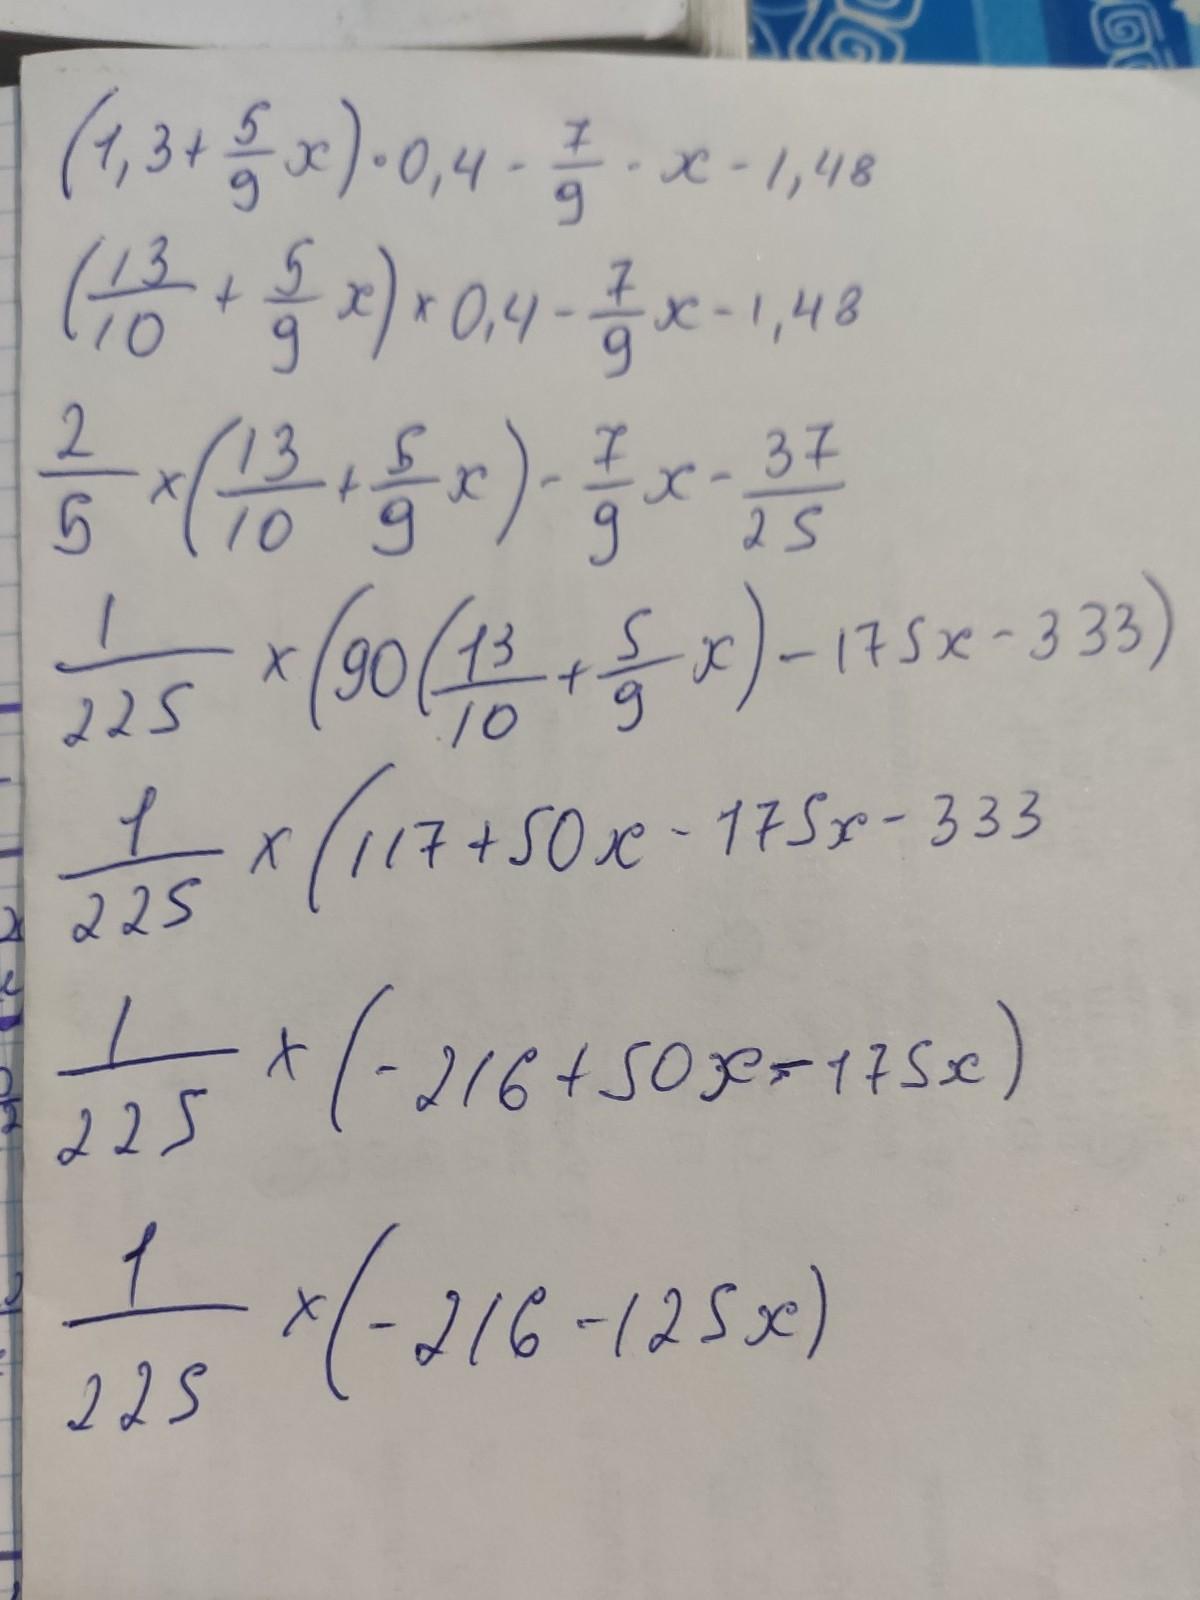 (1,3+5/9x)·0,4-7/9·x-1,48
(13/10+5/9x)×0,4-7/9x-1,48
2/5×(13/10+5/9x)-7/9x-37/25
1/225×(90(13/10+5/9x)-175x-333)
1/225×(117+50x-175x-333
1/225×(-216+50x-175x)
1/225×(-216-125x)